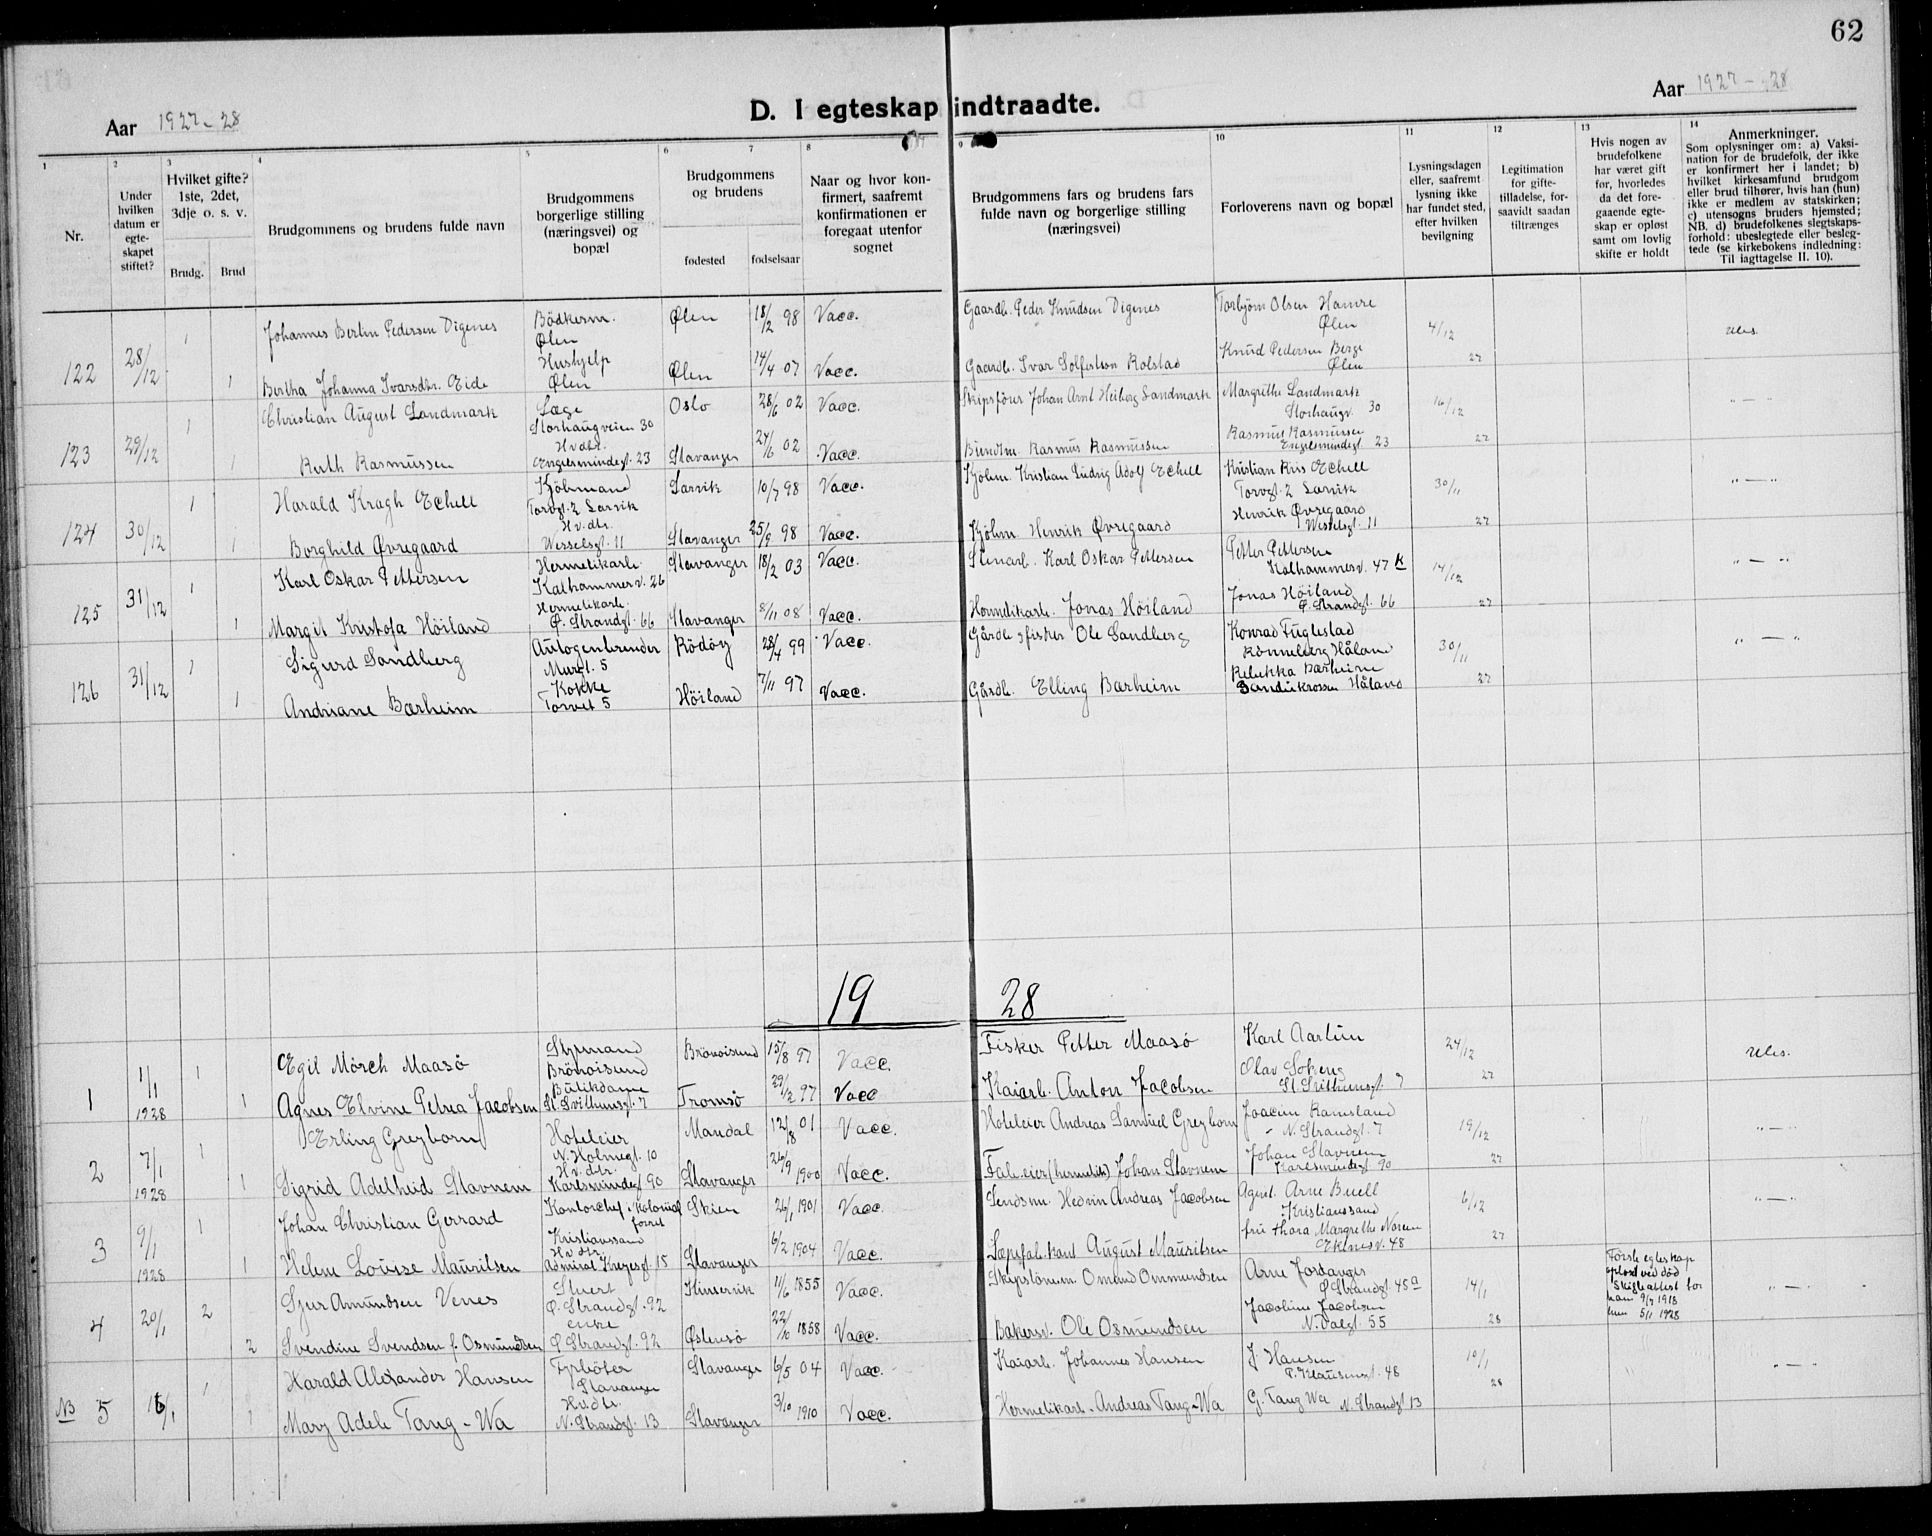 62
Aar 1927-28
D. I egteskap indtraadte.
Aar 1927-28
1 2 3 4 5 6 7 8 9 10 11 12 13 14
Nr.
Under hvilken datum er egteskapet stiftet?
Hvilket gifte? 1ste, 2det, 3dje o. s. v.
Brudg. Brud
Brudgommens og brudens fulde navn
Brudgommens borgerlige stilling (næringsvei) og bopæl
Brudgommens og brudens
fødested fødselsaar
Naar og hvor konfirmert, saafremt konfirmationen er foregaat utenfor sognet
Brudgommens fars og brudens fars fulde navn og borgerlige stilling (næringsvei)
Forloverens navn og bopæl
Lysningsdagen eller, saafremt lysning ikke har fundet sted, efter hvilken bevilgning
Legitimation for giftetilladelse, forsaavidt saadan tiltrænges
Hvis nogen av brudefolkene har været gift før, hvorledes da det foregaaende egteskap er opløst samt om lovlig skifte er holdt
Anmerkninger.
Som oplysninger om: a) Vaksination for de brudefolk, der ikke er konfirmert her i landet; b) hvilket kirkesamfund brudgom eller brud tilhører, hvis han (hun) ikke er medlem av statskirken; c) utensogns bruders hjemsted; NB. d) brudefolkenes slegtskapsforhold: ubeslegtede eller beslegtede (se kirkebokens indledning: Til iagttagelse II. 10).
122 28/12 1 Johannes Bertin Pedersen Digenes Bödkersv. Ølen Ølen 18/2 98 Vacc. Gaardb. Peder Knudsen Digenes Torbjörn Olsen Hamre Ølen 4/12 27 Ubes.
1 Bertha Johanna Ivarsdtr. Eide Hushjelp Ølen Ølen 14/4 07 Vacc. Gaardb. Ivar Rolstad Knud Pedersen Berge Ølen
123 29/12 1 Christian August Landmark Læge Storhaugveien 30 Oslo 28/6 02 Vacc. Skipsförer Johan Arnt Heiberg Landmark Margrethe Landmark Storhaugv. 30 16/12 27 " — "
1 Ruth Rasmussen Hv.dtr. Engelsmindegt. 23 Stavanger 24/6 02 Vacc. Rasmus Rasmussen Rasmus Rasmussen Engelsmindegt. 23
124 30/12 1 Harald Kragh Echell Kjöbmand Torvgt. 2 Larvik Larvik 10/7 98 Vacc. Kjöbm. Kristian Ludvig Adolf Echell Kristian Echell Torvgt. 2 Larvik 30/11 27 " — "
1 Borghild Øvregaard Hv.dtr. Wesselsgt. 11 Stavanger 25/9 98 Vacc. Kjöbm. Henrik Øvregaard Henrik Øvregaard Wesselsgt. 11
125 31/12 1 Karl Oskar Pettersen Hermetikarb. Kalhammerv. 26 Stavanger 18/2 03 Vacc. Stenarb. Karl Oskar Pettersen Petter Pettersen Kalhammerv. 47 14/12 27 " — "
1 Margit Kristofa Höiland Hermetikarb. Ø. Strandgt. 66 Stavanger 8/11 08 Vacc. Hermetikarb. Jonas Höiland Jonas Höiland Ø. Strandgt. 66
126 31/12 1 Sigurd Sandberg Autogenbrender Murgt. 5 Rödöy 28/4 99 Vacc. Gårdb. og fisker Ole Sandberg Konrad Fuglestad Håland 30/11 27 " — "
1 Andriane Bærheim Kokke Torvet 5 Höiland 7/11 97 Vacc. Gårdb. Elling Bærheim Rebekka Bærheim Håland
19 28
1 1/1 1928 1 Egil Mörch Maasö Styrmand Brönöisund Brönöisund 15/8 97 Vacc. Fisker Petter Maasö Karl Aarlin 24/12 27 Ubes.
1 Agnes Elvine Petrea Jacobsen Butikdame St. Svithunsgt. 7 Tromsö 29/2 97 Vacc Kaiarb. Anton Jacobsen Olav St. Svithunsgt. 7
2 7/1 1928 1 Erling Greyborn Hoteleier N. Holmegt. 10 Mandal 12/8 01 Vacc. Hoteleier Andreas Samuel Greyborn Joacim Ramsland N. Strandgt. 7 19/12 27 " — "
1 Sigrid Adelheid Stavnem Hv.dtr. Karlsmindegt 90 Stavanger 26/9 1900 Vacc. Johan Stavnem Johan Stavnem Karlsmindegt. 90
3 9/1 1928 1 Johan Christian Gerrard Kontorchef Kristianssand Skien 26/1 1901 Vacc. Andreas Jacobsen Agent. Arne Buell Kristianssand 6/12 27 " — "
1 Helene Lovise Mauritsen Hv.dtr. Admiral Krugesgt. 15 Stavanger 6/2 1904 Vacc. Sæpefabrikant August Mauritsen fru Thora Margrethe Noreen Ekenesv. 48
4 20/1 2 Sjur Amundsen Venes Stuert Ø. Strandgt. 92 Kinservik 11/6 1855 Vacc. Skipstömm. Omund Ommundsen Arne Jordanger Ø Strandgt. 45a 14/1 28 Förste egteskap oplöst ved död Skifteattest for ham 9/7 1918 hun 5/1 1928 " — "
2 Svendine Svendsen f. Osmundsen enke Ø Strandgt. 92 Østensö 22/10 1858 Vacc. Bakersv. Ole Osmundsen Jacobine Jacobsen N. Dalgt. 55
NB 5 16/1 1 Harald Alexander Hansen Fyrböter Stavanger Stavanger 6/5 04 Vacc. Kaiarb. Johannes Hansen J. Hansen P. Klausensgt. 48 10/1 28 " — "
1 Mary Adele Tang-Wa Hv.dtr. N. Strandgt. 13 Stavanger 3/10 1910 Vacc. Hermetikarb. Andreas Tang-Wa G. Tang Wa N. Strandgt 13